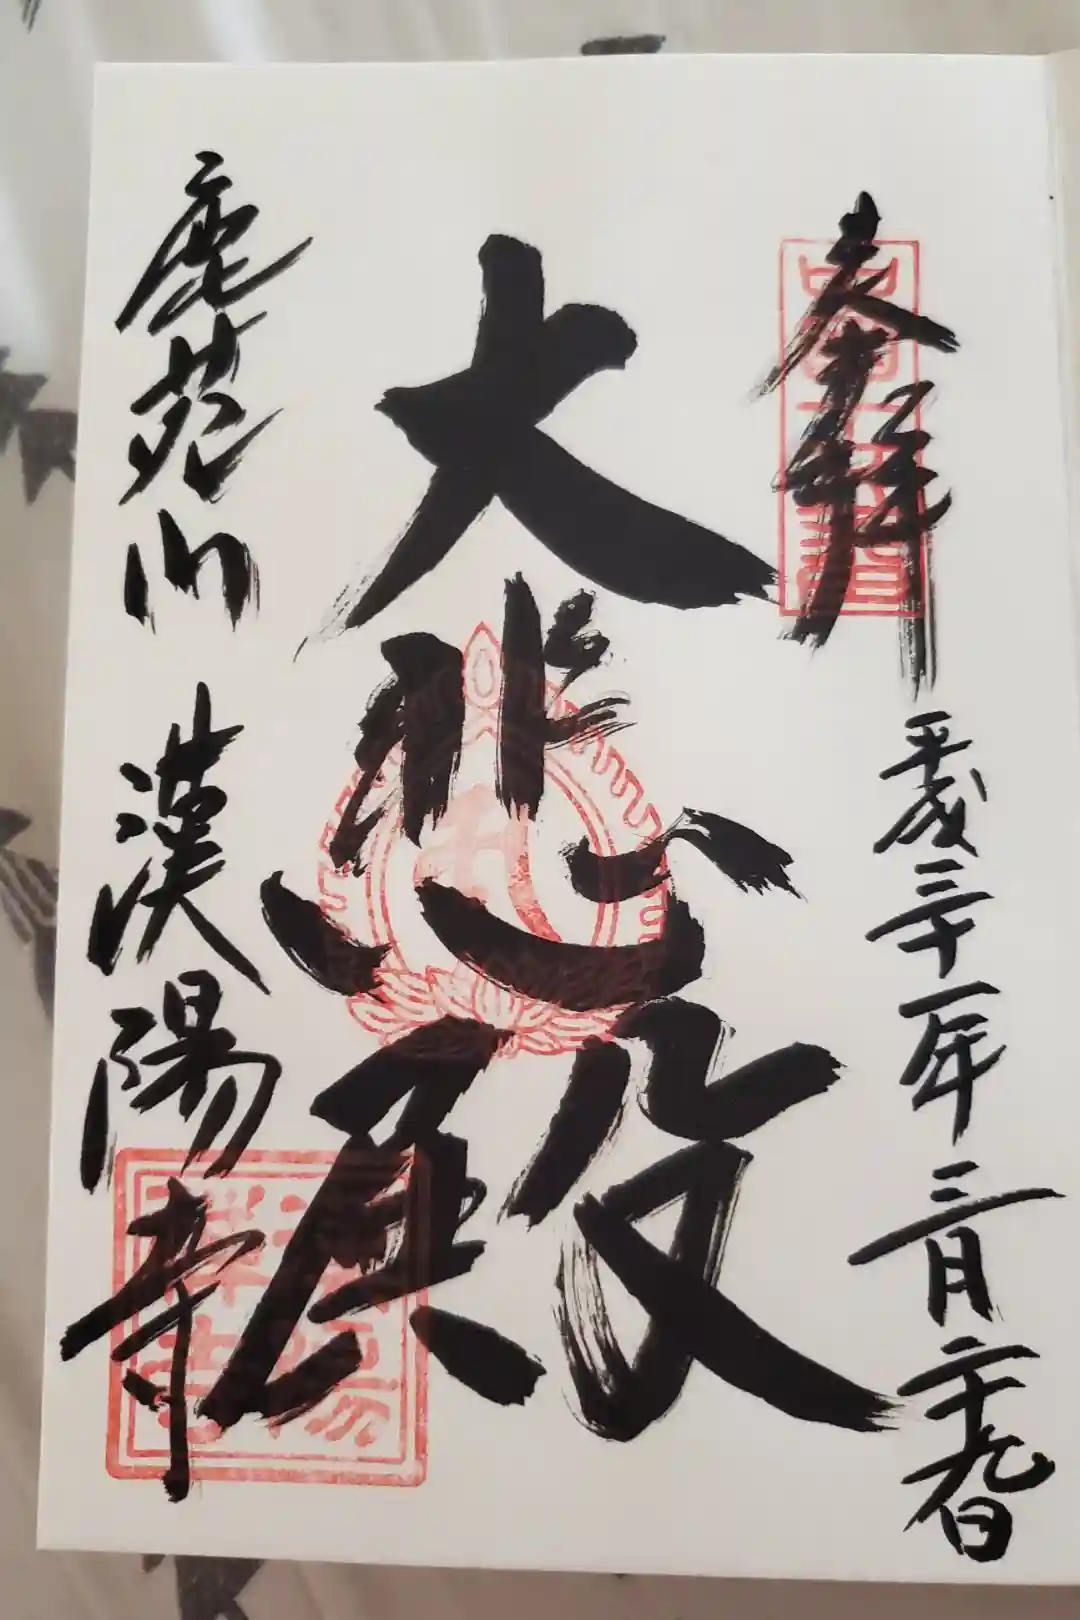 奉拝
平成三十一年三月二十九日
大悲殿
鹿苑山 漢陽寺